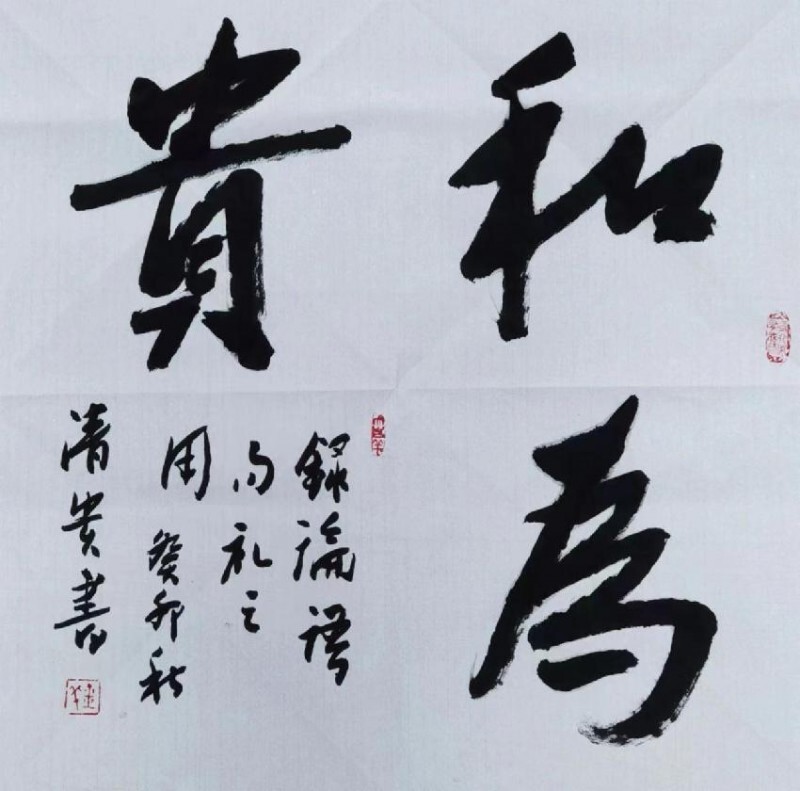 和為
貴
録論語
句礼之
用癸卯秋
清贵書